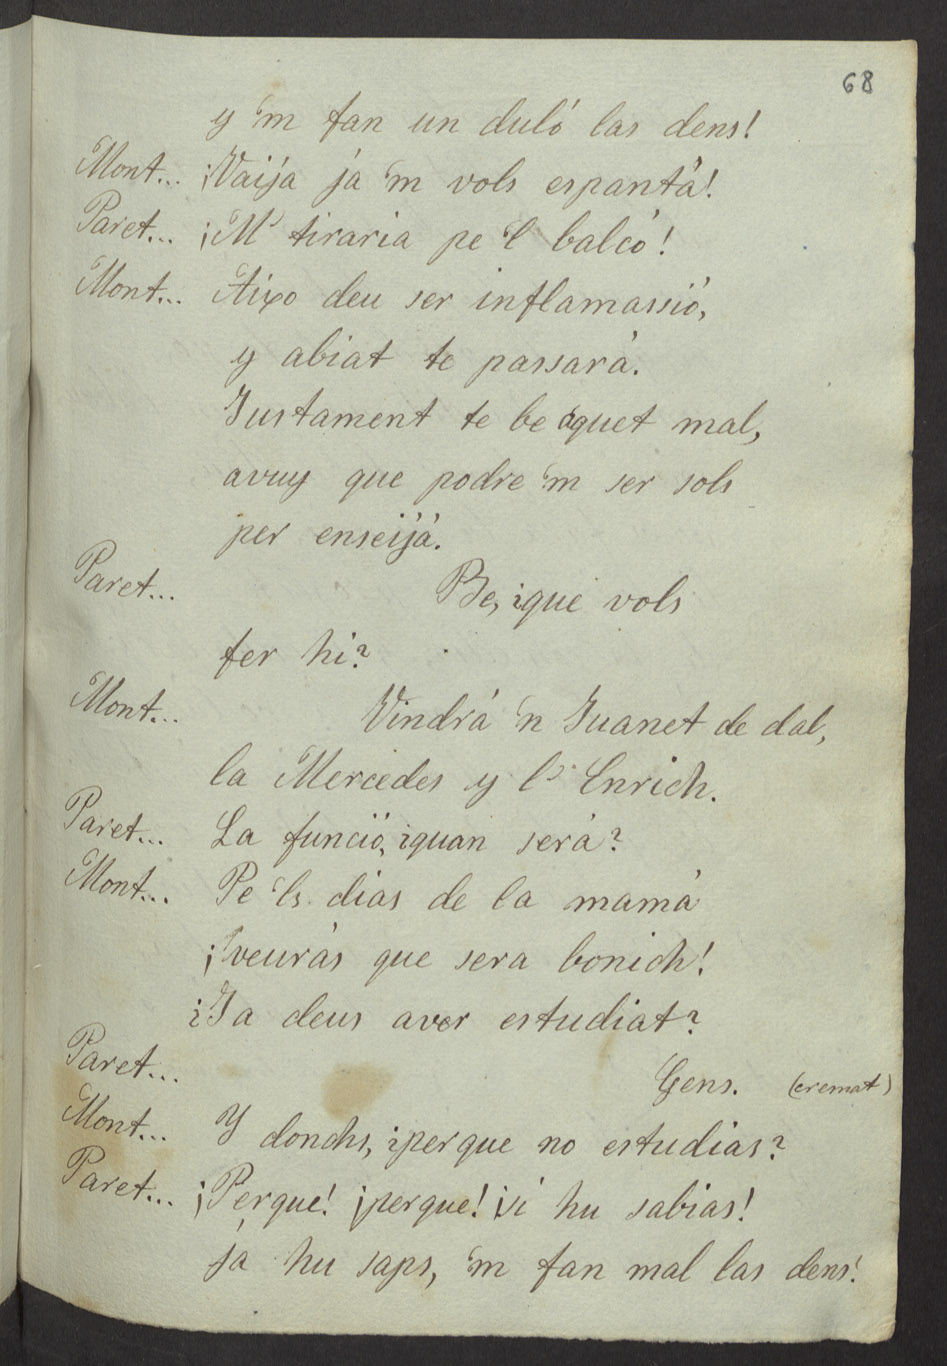 68
y 'm fan un duló las dens!
Mont... ¡Vaija ja 'm vols espantá!
Paret... ¡M' tiraria pe 'l balcó!
Mont... Aixo deu ser inflamassió,
y abiat te passará.
Justament te be aquet mal,
avuy que podre 'm ser sols
per enseijá.
Paret... Be, ¿que vols
fer hi?
Mont... Vindrá 'n Juanet de dal,
la Mercedes y l' Enrich.
Paret... La funció, ¿quan será?
Mont... Pe 'ls dias de la mamá
¡veurás que sera bonich!
¿Ja deus aver estudiat?
Paret... Gens. (cremat)
Mont... Y donchs, ¿perque no estudias?
Paret... ¡Perque! ¡perque! ¡si hu sabias!
ja hu saps, 'm fan mal las dens!